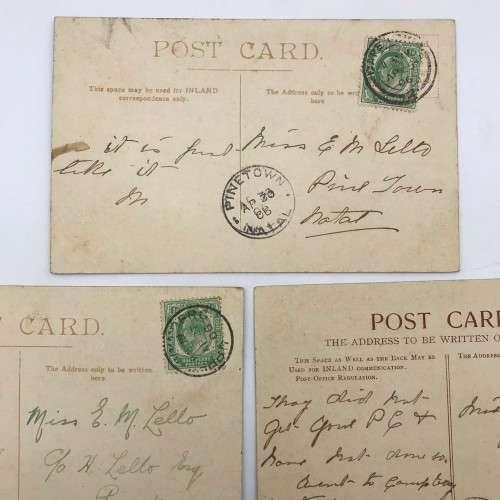 POST CARD.
This space may be used for INLAND
correspondence only.
The Address only to be
here
it is just
like it
M
Miss E M Lello
Pine Town
Natal
PINETOWN
NATAL
CARD.
The Address only to be written
here.
Miss E. M. Lello
c/o H. Lello Esq
POST CAR
THE ADDRESS TO BE WRITTEN O
THIS SPACE AS WELL AS THE BACK MAY BE
USED FOR INLAND COMMUNICATION.
POST-OFFICE REGULATION.
THE ADDRES
They did not
get your P C &
have not
went to